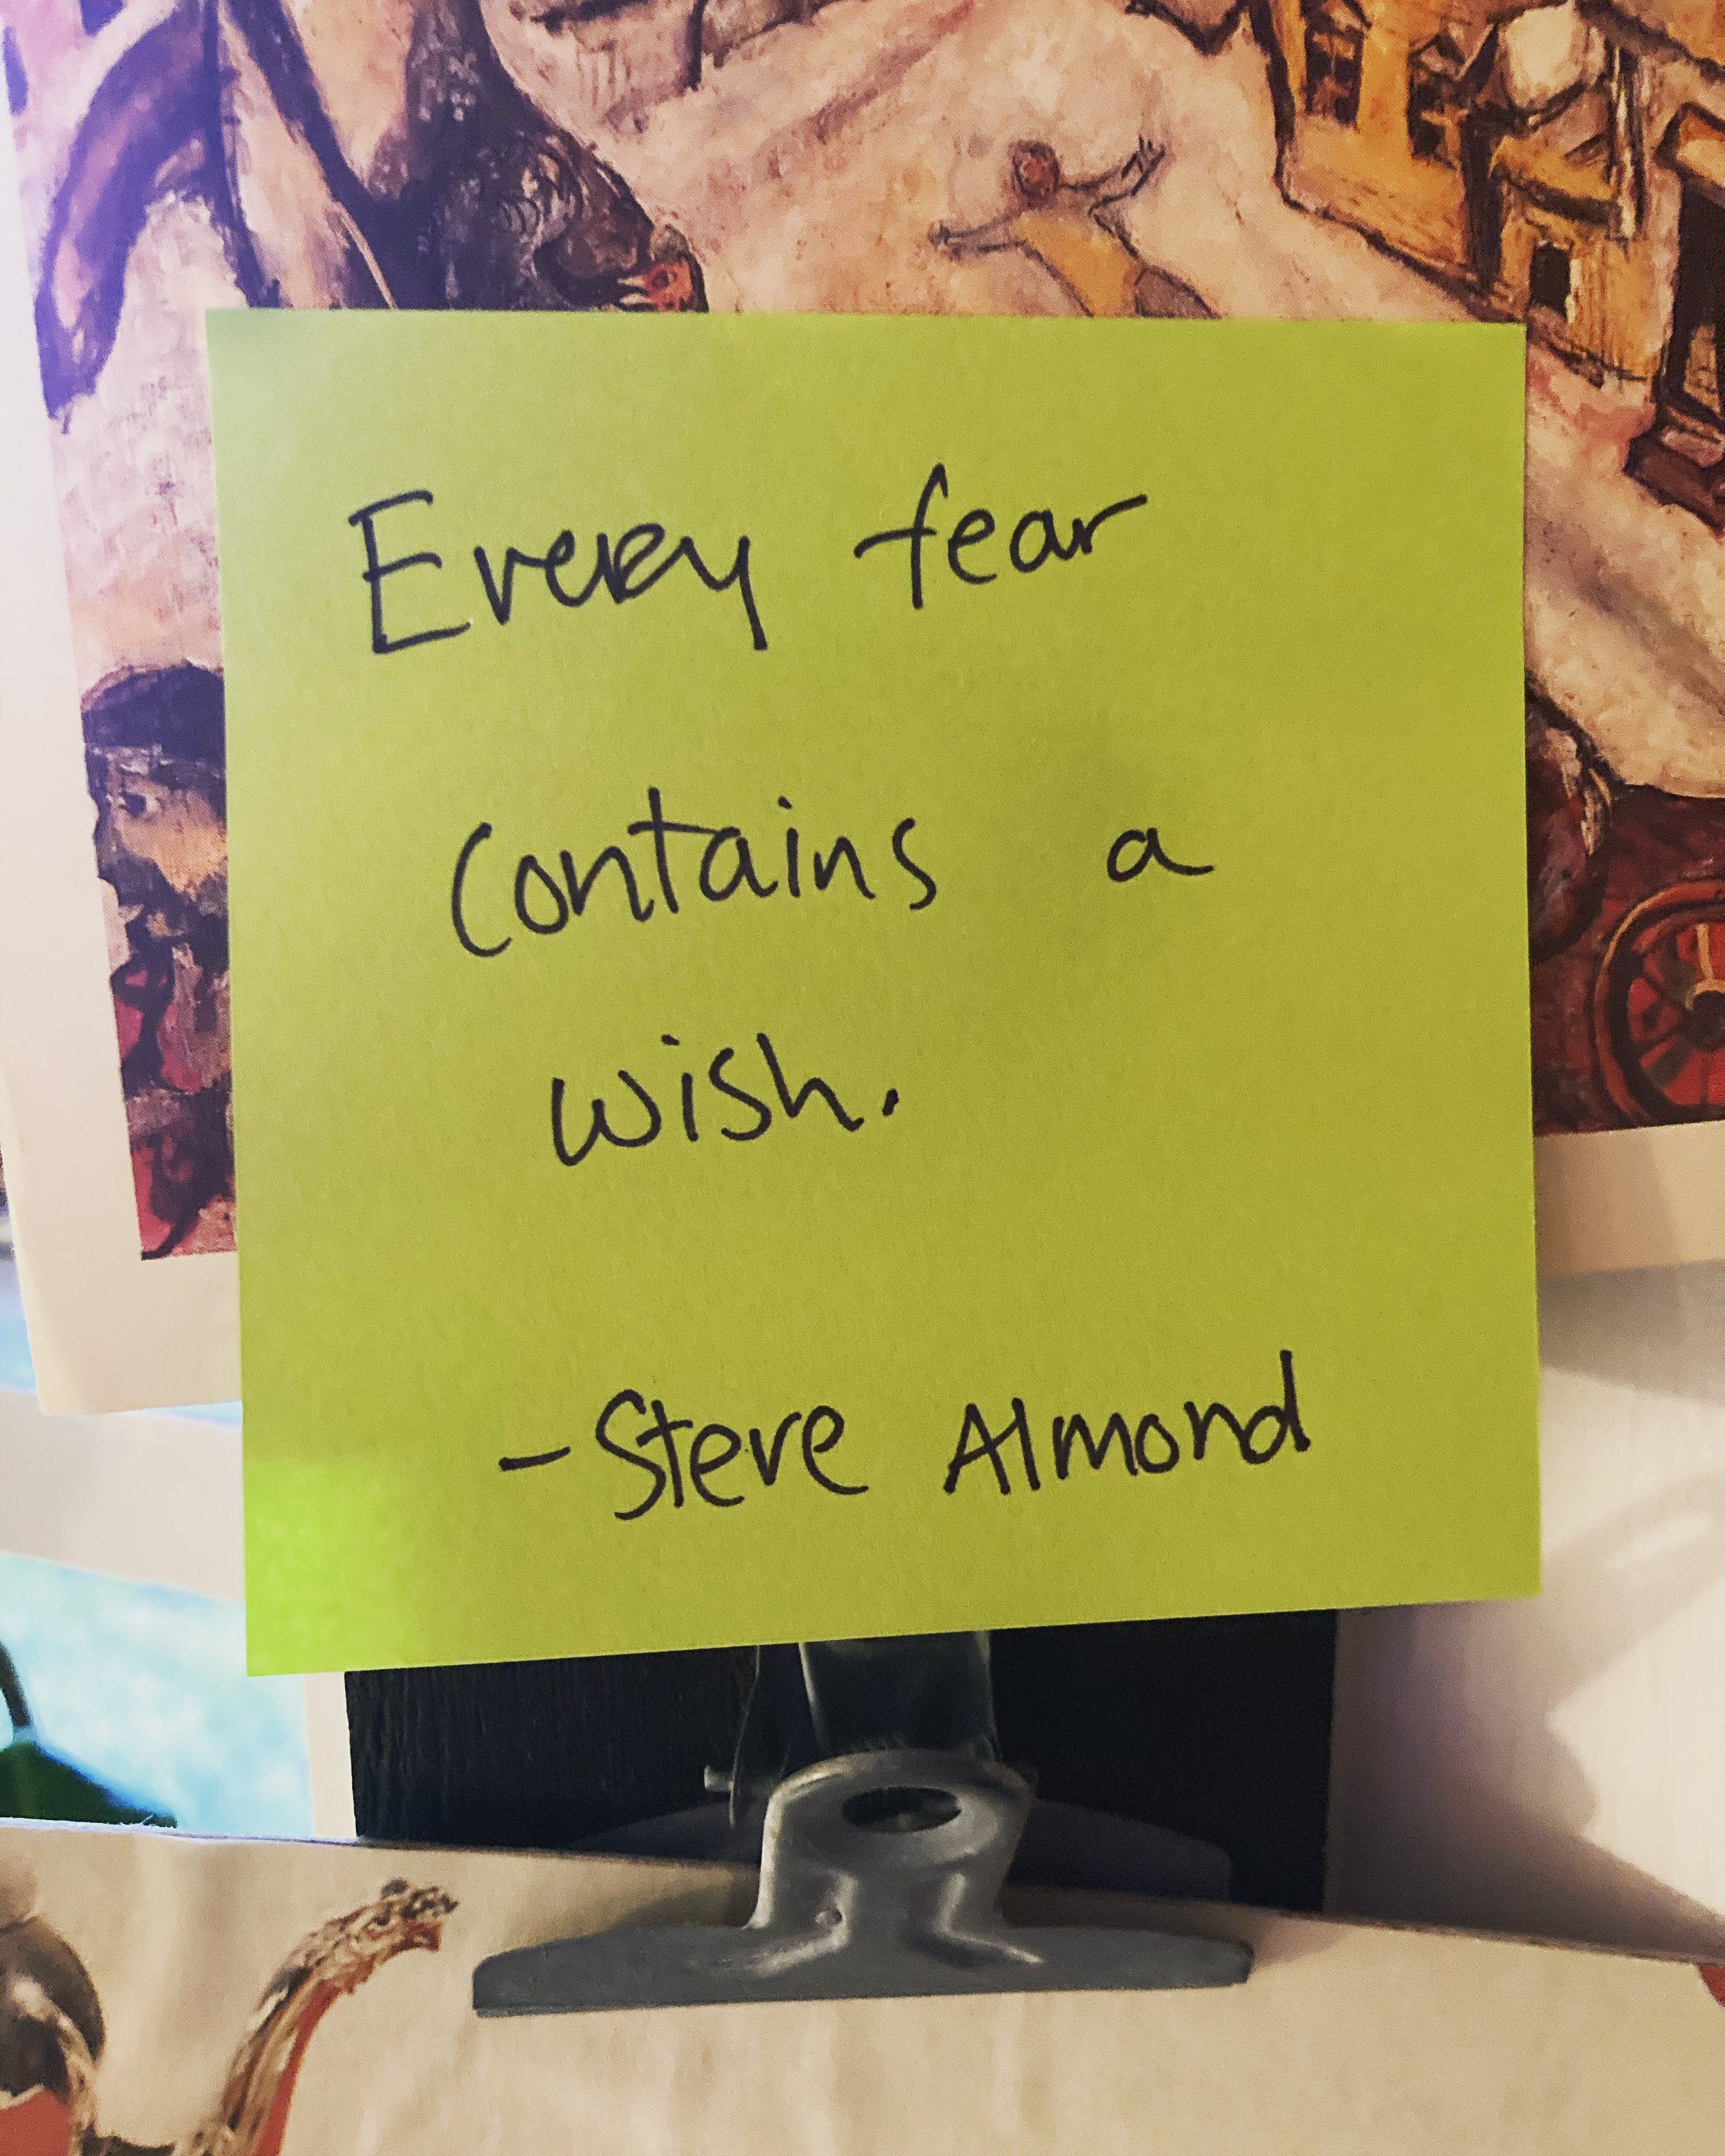 Every fear
contains a
wish.
-Steve Almond